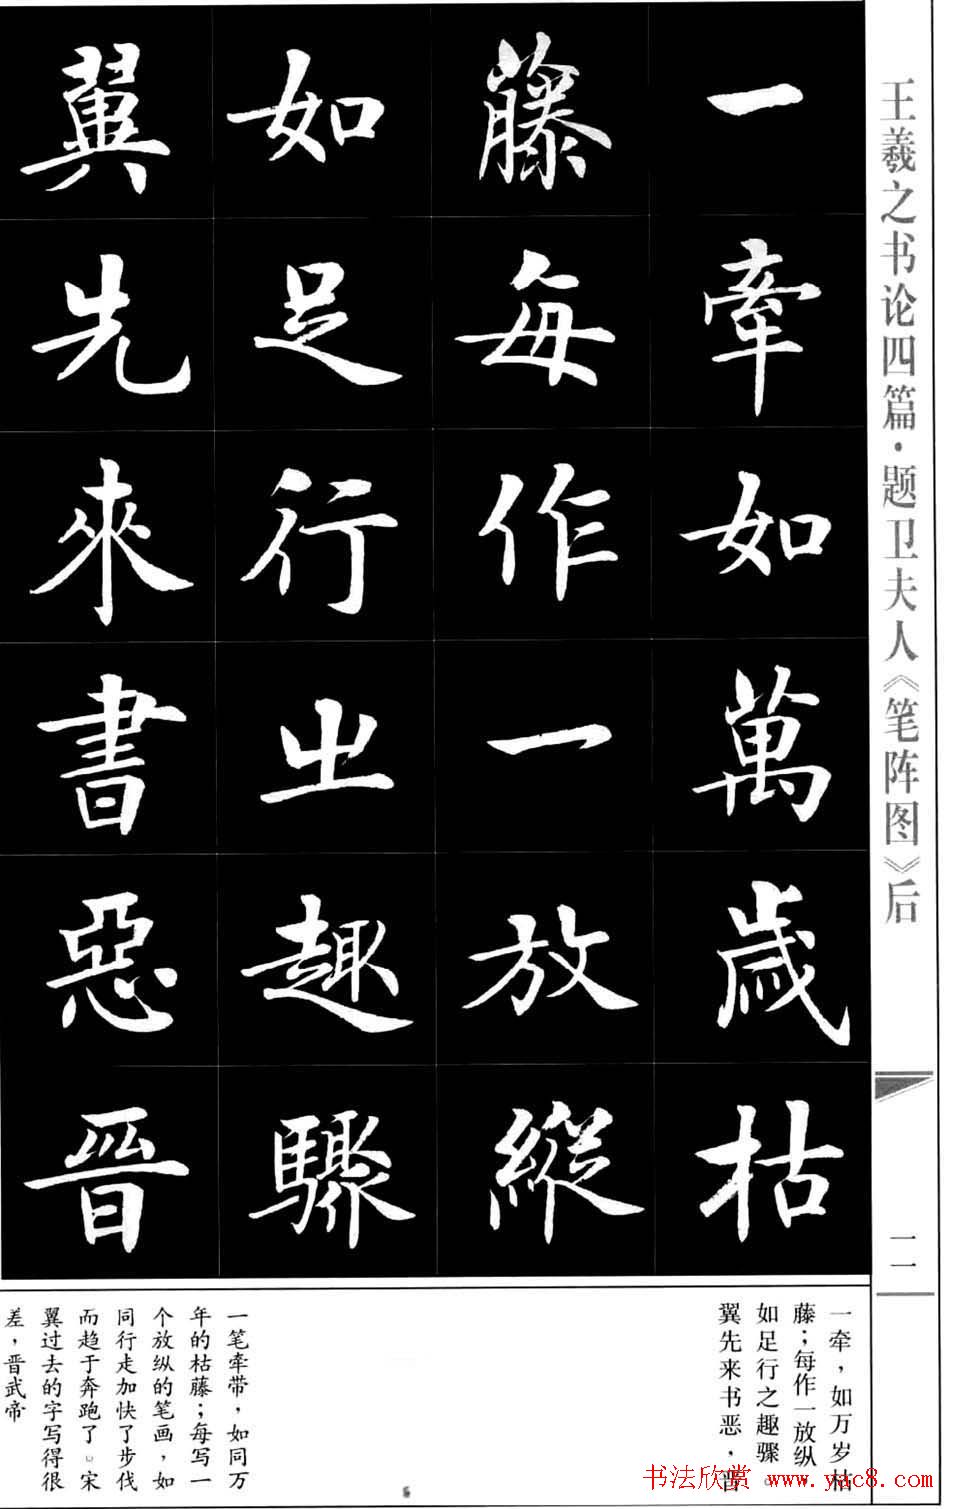 王羲之书论四篇·题卫夫人《笔阵图》后
一一
一牽如萬歲枯
藤每作一放縱
如足行之趣驟
翼先來書惡晉
一牵，如万岁枯
藤；每作一放纵
如足行之趣骤。
翼先来书恶，晋
一笔牵带，如同万
年的枯藤；每写一
个放纵的笔画，如
同行走加快了步伐
而趋于奔跑了。宋
翼过去的字写得很
差，晋武帝
书法欣赏 www.yac8.com